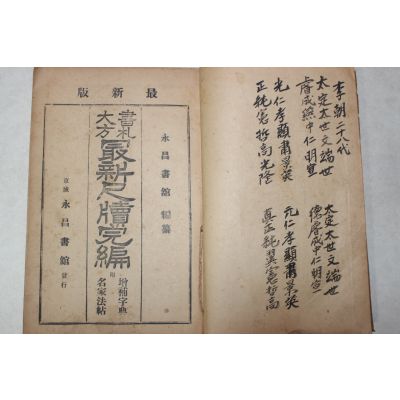 李朝二十八代
太定太世文端世
睿成燕中仁明宣
光仁孝顯肅景英
正純憲哲高光隆
太定太世文端世
德睿成中仁明宣
元仁孝顯肅景英
真正純翼憲哲高
最新版
永昌書舘 編纂
書札大方
最新尺牘完編
附
增補字典
名家法帖
京城 永昌書舘 發行